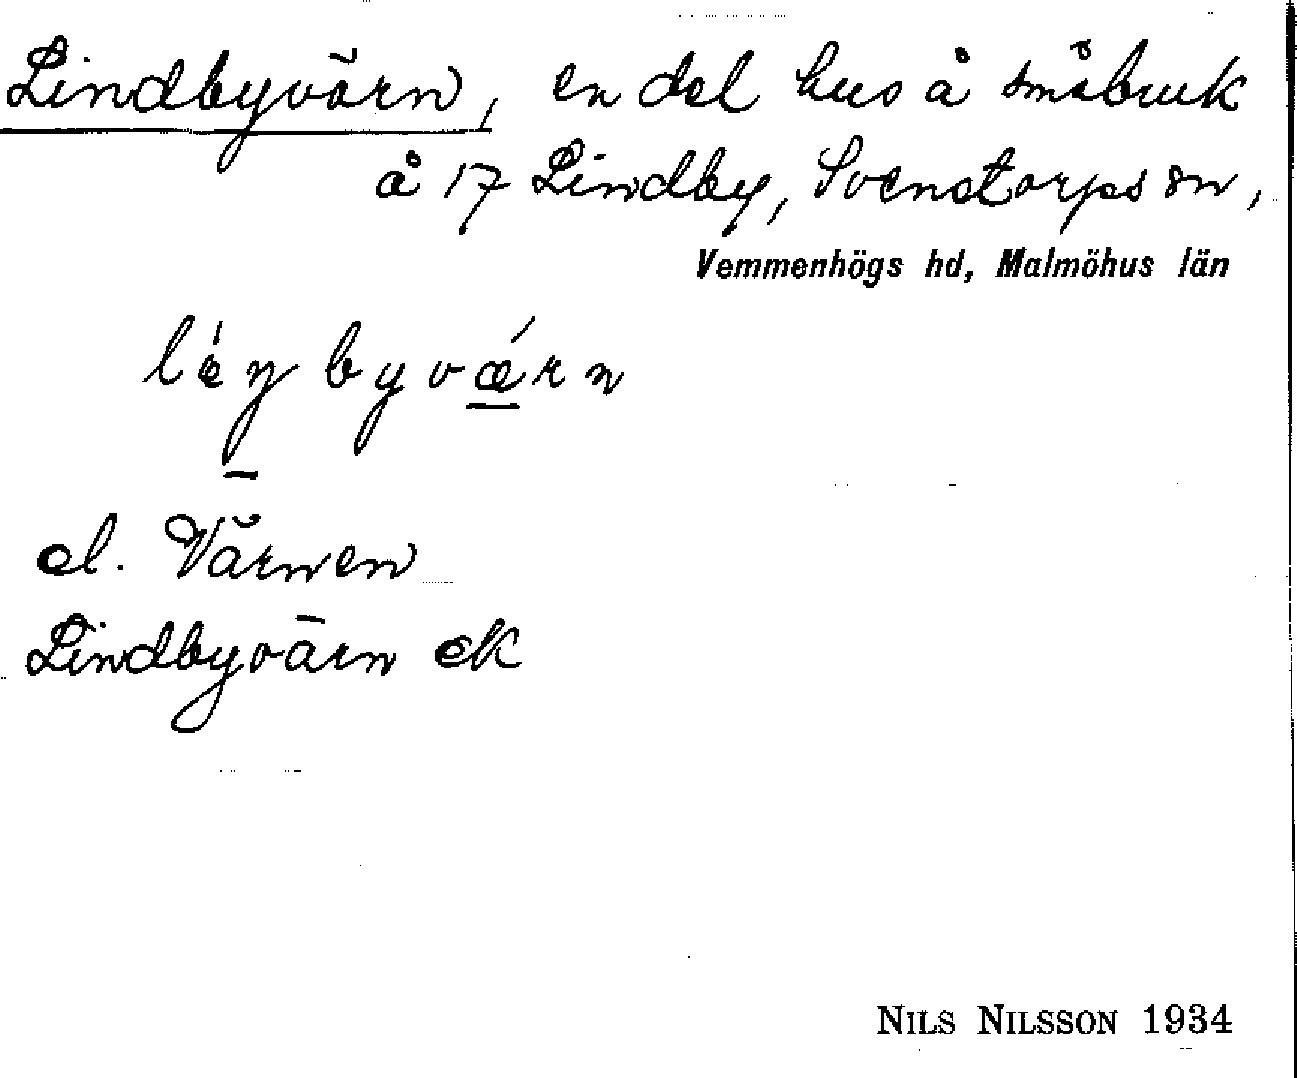 Lindbyvärn, en del hus å småbruk
å 17 Lindby, Svenstorps sn,
Vemmenhögs hd, Malmöhus län
léŋbyvǽrn
el. Värnen
Lindbyvärn ek
NILS NILSSON 1934